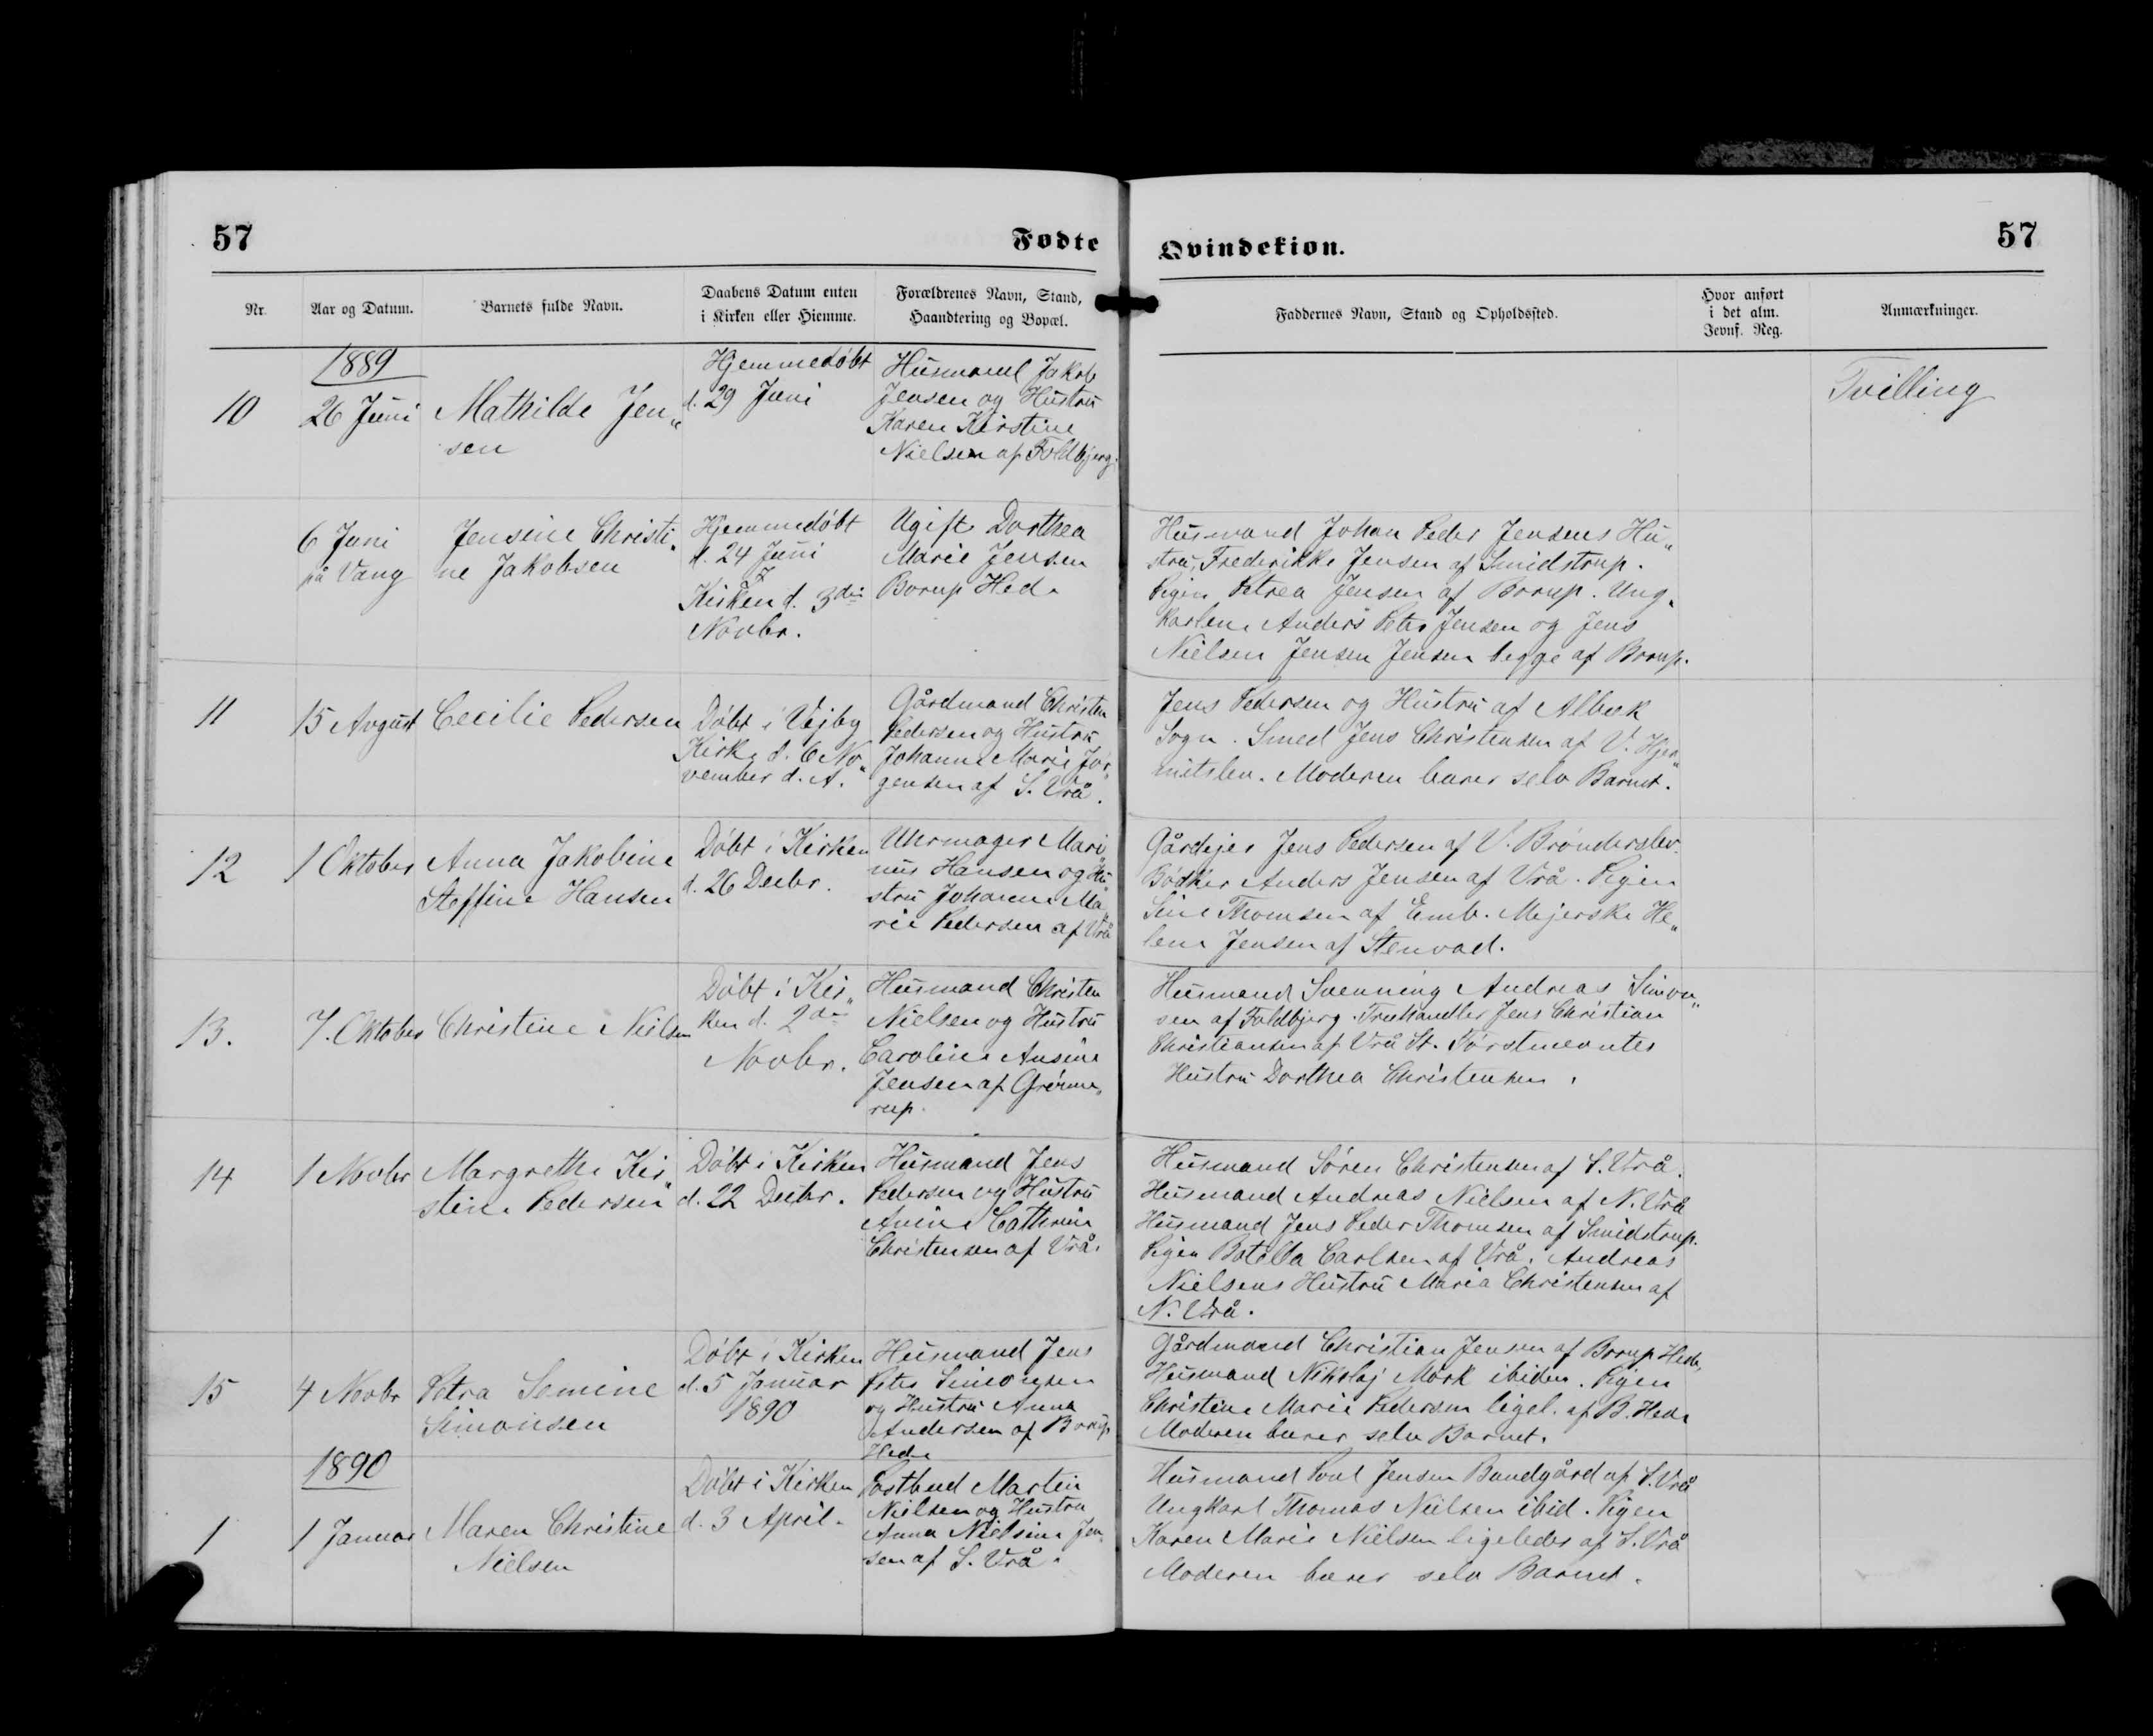 57
Fødte
Qvindekiøn.
57
Nr.
Aar og Datum.
Barnets fulde Navn.
Daabens Datum enten
i Kirken eller Hiemme.
Forældrenes Navn, Stand,
Haandtering og Bopæl.
Faddernes Navn, Stand og Opholdssted.
Hvor anført
i det alm.
Jevnf. Reg.
Anmærkninger.
1889
10
26 Juni
Mathilde Jen„
sen
Hjemmedøbt
d. 29 Juni
Husmand Jakob
Jensen og Hustru
Karen Kirstine
Nielsen af Foldbjerg.
Tvilling
6 Juni
på Vang
Jensine Christi„
ne Jakobsen
Hjemmedøbt
d. 24 Juni
Kirken d. 3die
Novbr.
Ugift Dorthea
Marie Jensen
Borup Hede
Husmand Johan Peder Jensens Hu„
stru, Frederikke Jensen af Smidstrup.
Pigen Petrea Jensen af Borup. Ung„
karlene Anders Peter Jensen og Jens
Nielsen Jensen Jensen begge af Borup.
11
15 August
Cecilie Pedersen
Døbt i Vejby
Kirke d. 6 No„
vember d. A.
Gårdmand Christen
Pedersen og Hustru
Johanne Marie Jør„
gensen af S. Vrå.
Jens Pedersen og Hustru af Albæk
Sogn. Smed Jens Christensen af V. Hjer„
mitslev. Moderen bærer selv Barnet.
12
1 Oktober
Anna Jakobine
Steffine Hansen
Døbt i Kirken
d. 26 Decbr.
Uhrmager Mari
nus Hansen og Hu
stru Johanne Ma„
rie Pedersen af Vrå
Gårdejer Jens Pedersen af V. Brønderslev.
Bødker Anders Jensen af Vrå. Pigen
Sine Thomsen af Emb. Mejerske He„
lene Jensen af Stenvad.
13.
7. Oktober
Christine Nielsen
Døbt i Kir„
ken d. 2den
Novbr.
Husmand Christen
Nielsen og Hustru
Caroline Ansine
Jensen af Grønne„
rup.
Husmand Svenning Andreas Simon„
sen af Foldbjerg. Træhandler Jens Christian
Christiansen af Vrå St. Førstnevntes
Hustru Dorthea Christensen.
14
1 Novbr
Margrethe Kir„
stine Pedersen
Døbt i Kirken
d. 22 Decbr.
Husmand Jens
Pedersen og Hustru
Anine Cathrine
Christensen af Vrå.
Husmand Søren Christensen af S. Vrå.
Husmand Andreas Nielsen af N. Vrå
Husmand Jens Peder Thomsen af Smidstrup.
Pigen Botella Carlsen af Vrå. Andreas
Nielsens Hustru Maria Christensen af
N. Vrå.
15
4 Novbr
Petra Semine
Simonsen
Døbt i Kirken
d. 5 Januar
1890
Husmand Jens
Peter Simonsen
og Hustru Anna
Andersen af Borup
Hede
Gårdmand Christian Jensen af Borup Hede,
Husmand Nikolaj Mørk ibidem. Pigen
Christine Marie Pedersen ligel. af B. Hede
Moderen bærer selv Barnet.
1890
1
1 Januar
Maren Christine
Nielsen
Døbt i Kirken
d. 3 April.
Postbud Martin
Nielsen og Hustru
Anna Nielsine Jen„
sen af S. Vrå.
Husmand Poul Jensen Bundgård af S. Vrå
Ungkarl Thomas Nielsen ibid. Pigen
Karen Marie Nielsen ligeledes af S. Vrå
Moderen bærer selv Barnet.